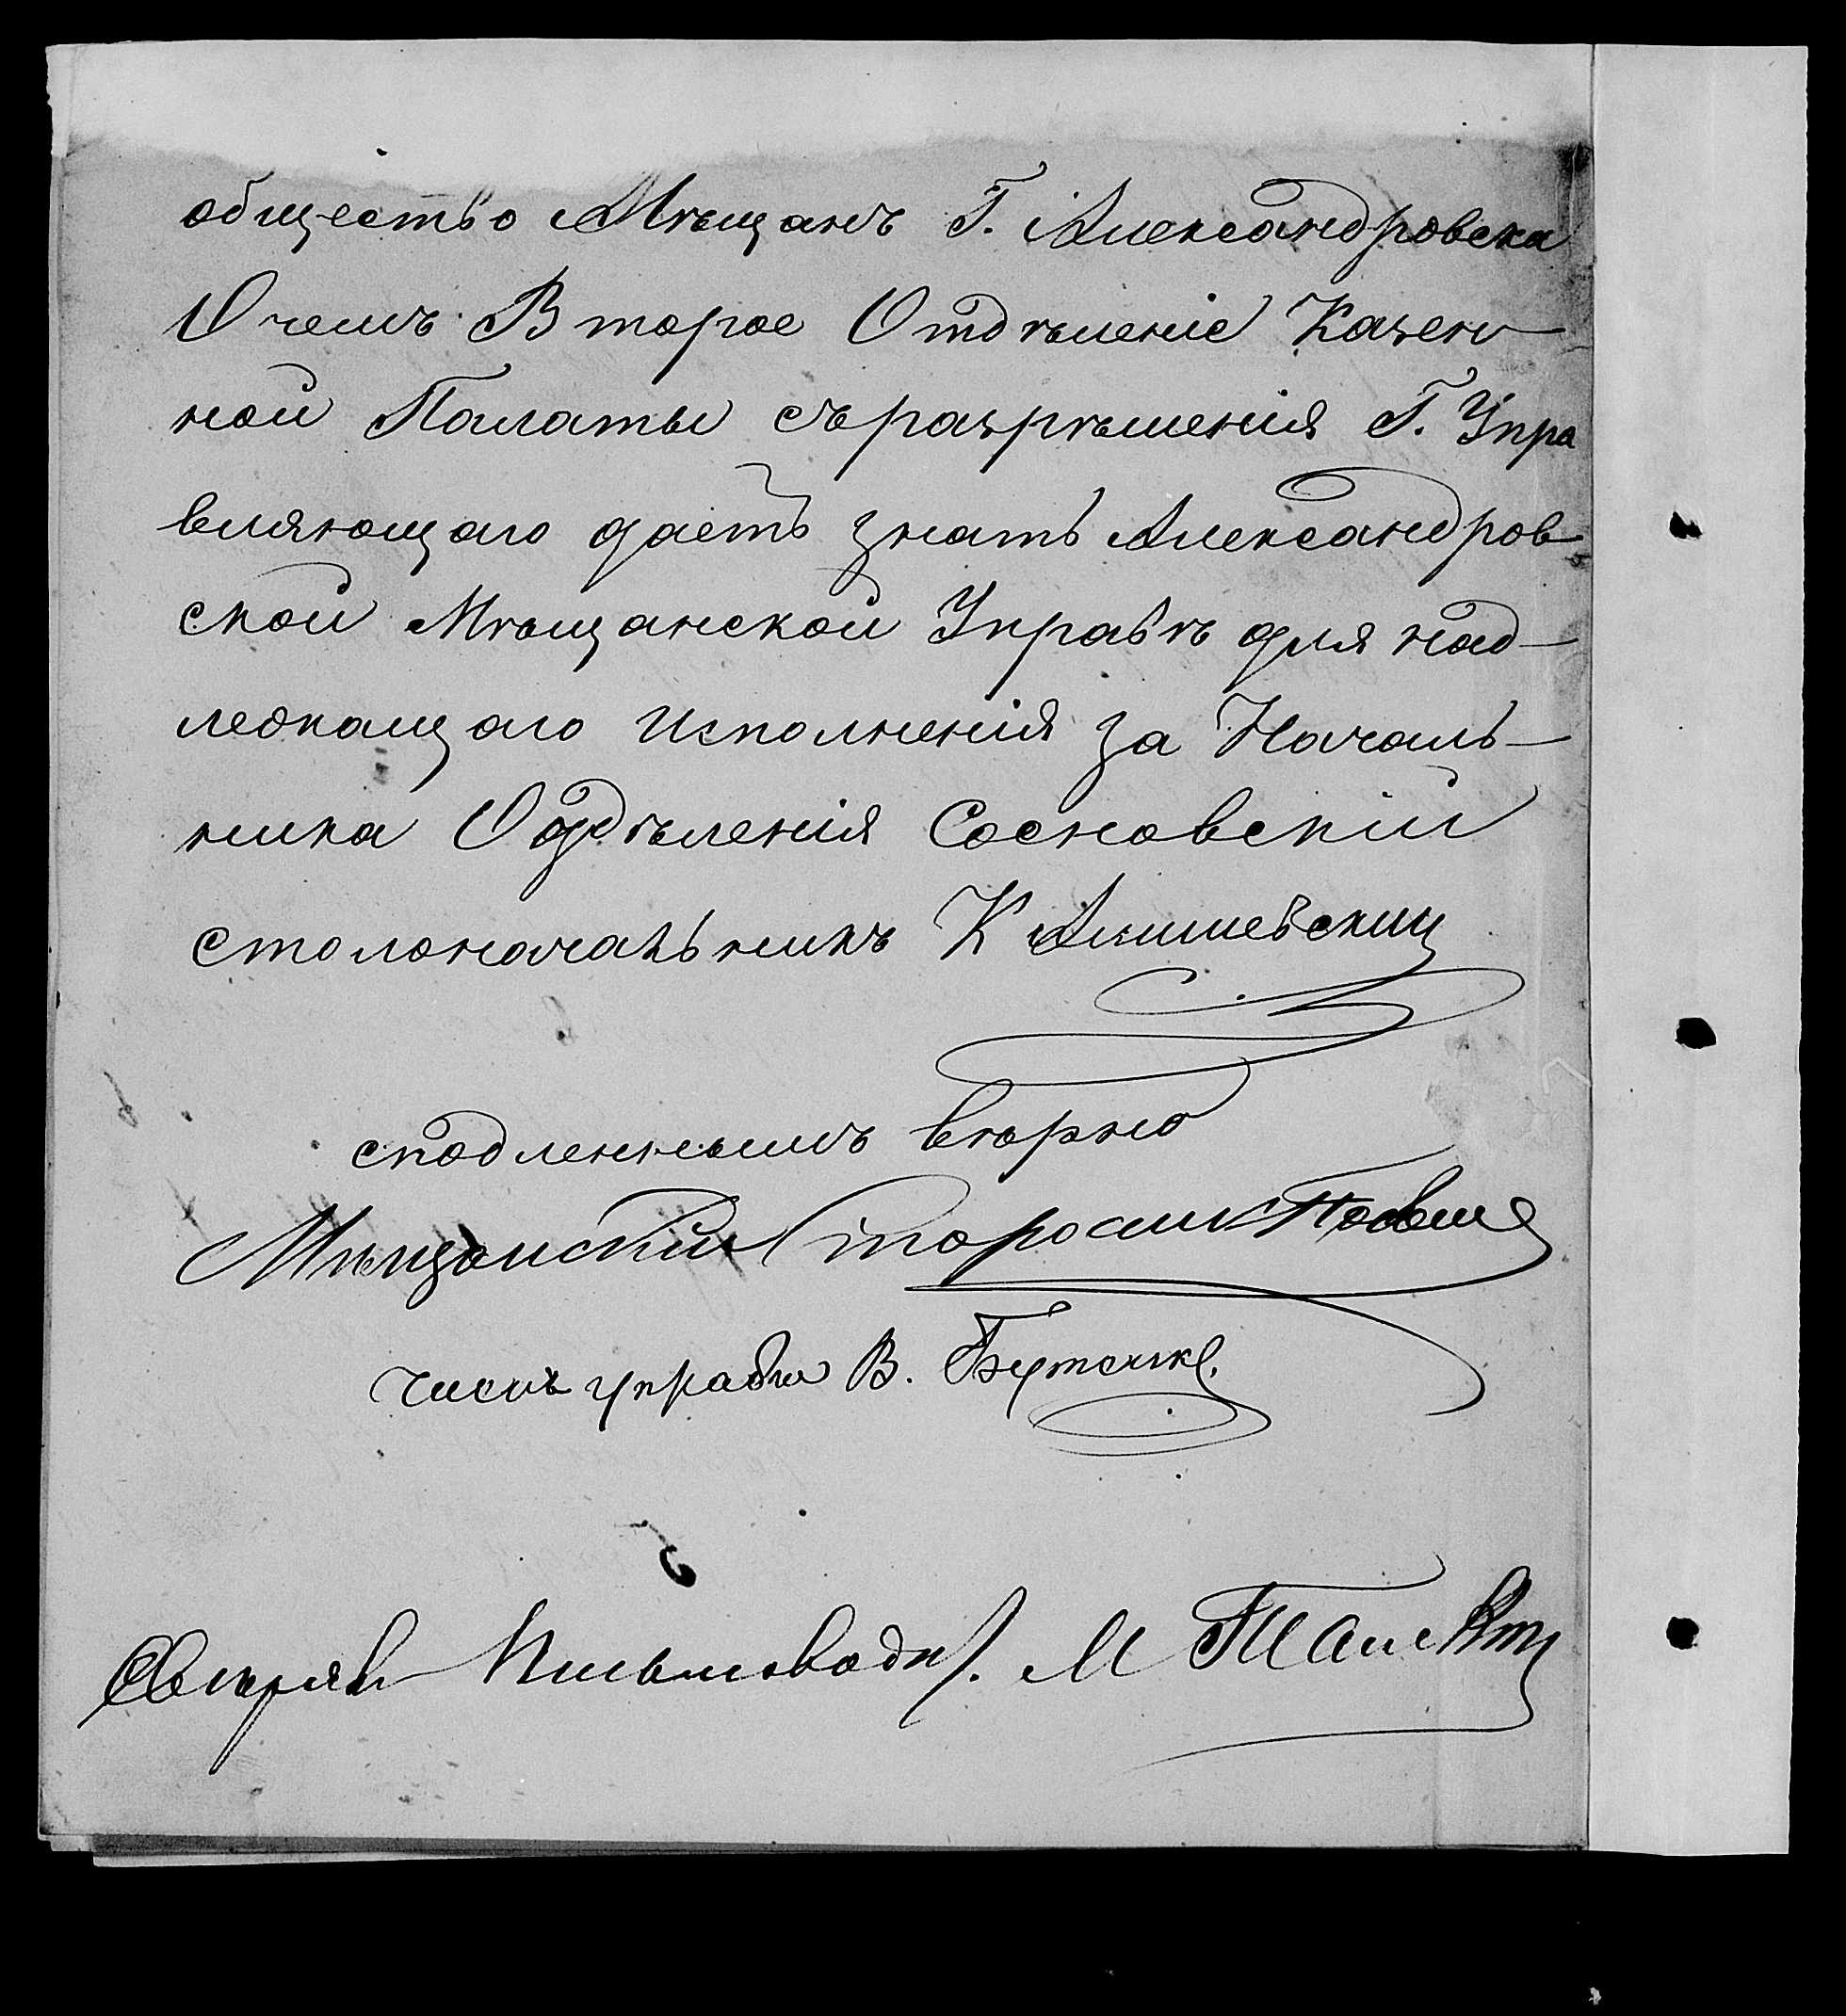 общество Мѣщанъ Г. Александровска
О чемъ Второе Отдѣленіе Казен-
ной Палаты съ разрѣшенія Г. Упра
вляющаго даетъ знать Александров-
ской Мѣщанской Управѣ для над-
лежащаго исполненія за Началь-
ника Отдѣленія Сосновскій
столоначальникъ К
сподленнымъ вѣрно
Мѣщанскій Староста
Членъ управы В.
Свѣрялъ Письмоводит. М